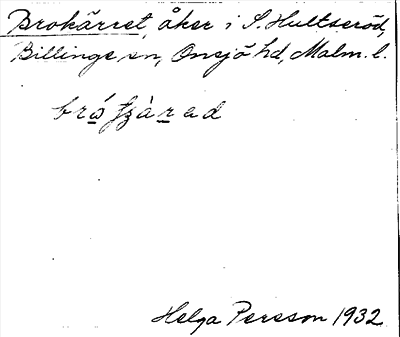 Brokärret, åker i S. Hultseröd,
Billinge sn, Onsjö hd, Malm. l.
Helga Persson 1932